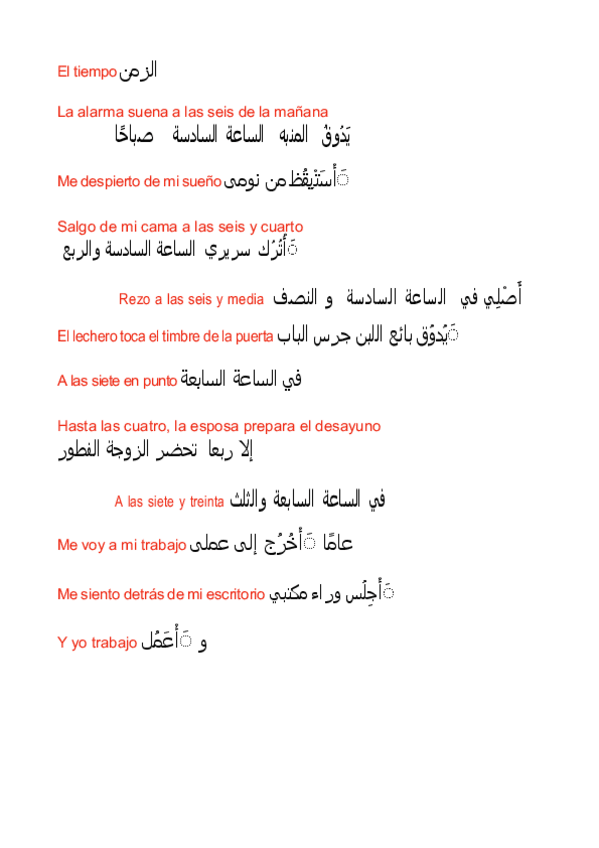 El tiempo الزمن
La alarma suena a las seis de la mañana
يَدُوقُ المنبه الساعة السادسة صباحًا
Me despierto de mi sueño َأْسَتْيقُظ من نومى
Salgo de mi cama a las seis y cuarto
َأْتُرُك سريري الساعة السادسة والربع
Rezo a las seis y media أَصْلِي في الساعة السادسة و النصف
El lechero toca el timbre de la puerta َيُدوُق بائع اللبن جرس الباب
A las siete en punto في الساعة السابعة
Hasta las cuatro, la esposa prepara el desayuno
إلا ربعا تحضر الزوجة الفطور
A las siete y treinta في الساعة السابعة والثلث
Me voy a mi trabajo عامًا َأْخُرُج إلى عملى
Me siento detrás de mi escritorio َأْجِلُس وراء مكتبي
Y yo trabajo و َأْعَمُل